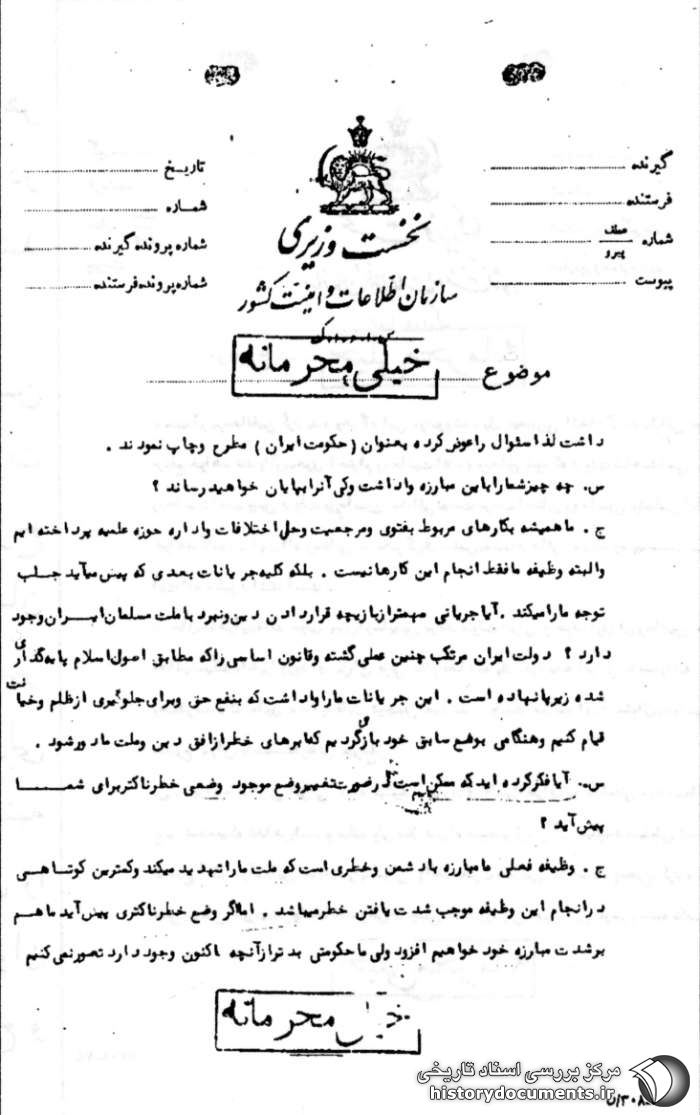 گیرنده
فرستنده
شماره عطف پیرو
پیوست
تاریخ
شماره
شماره پرونده گیرنده
شماره پرونده فرستنده
نخست وزیری
سازمان اطلاعات و امنیت کشور
س.ا.و.ا.ک
خیلی محرمانه
موضوع
داشت لذا سئوال را عوض کرده بعنوان (حکومت ایران) مطرح و چاپ نمودند .
س. چه چیز شما را باین مبارزه واداشت و کی آنرا بپایان خواهید رساند ؟
ج . ما همیشه بکارهای مربوط بفتوی و مرجعیت و حل اختلافات و اداره حوزه علمیه پرداخته ایم
والبته وظیفه ما فقط انجام این کارها نیست . بلکه کلیه جریانات بعدی که پیش میآید جلب
توجه ما را میکند . آیا جریانی مهمتر از بازیچه قرار دادن دین و نبرد با ملت مسلمان ایران وجود
دارد ؟ دولت ایران مرتکب چنین عملی گشته و قانون اساسی را که مطابق اصول اسلام پایه گذاری
شده زیر پا نهاده است . این جریانات ما را واداشت که بنفع حق و برای جلوگیری از ظلم و خیانت
قیام کنیم و هنگامی بوضع سابق خود باز گردیم که ابرهای خطر از افق دین و ملت ما دور شود .
س. آیا فکر کرده اید که ممکن است در صورت تغییر وضع موجود وضعی خطرناکتر برای شما
پیش آید ؟
ج . وظیفه فعلی ما مبارزه با دشمن و خطری است که ملت ما را تهدید میکند و کمترین کوتاهی
در انجام این وظیفه موجب شدت یافتن خطر میباشد . اما اگر وضع خطرناکتری پیش آید ما هم
بر شدت مبارزه خود خواهیم افزود ولی ما حکومتی بدتر از آنچه اکنون وجود دارد تصور نمی کنیم
خیلی محرمانه
مرکز بررسی اسناد تاریخی
historydocuments.ir